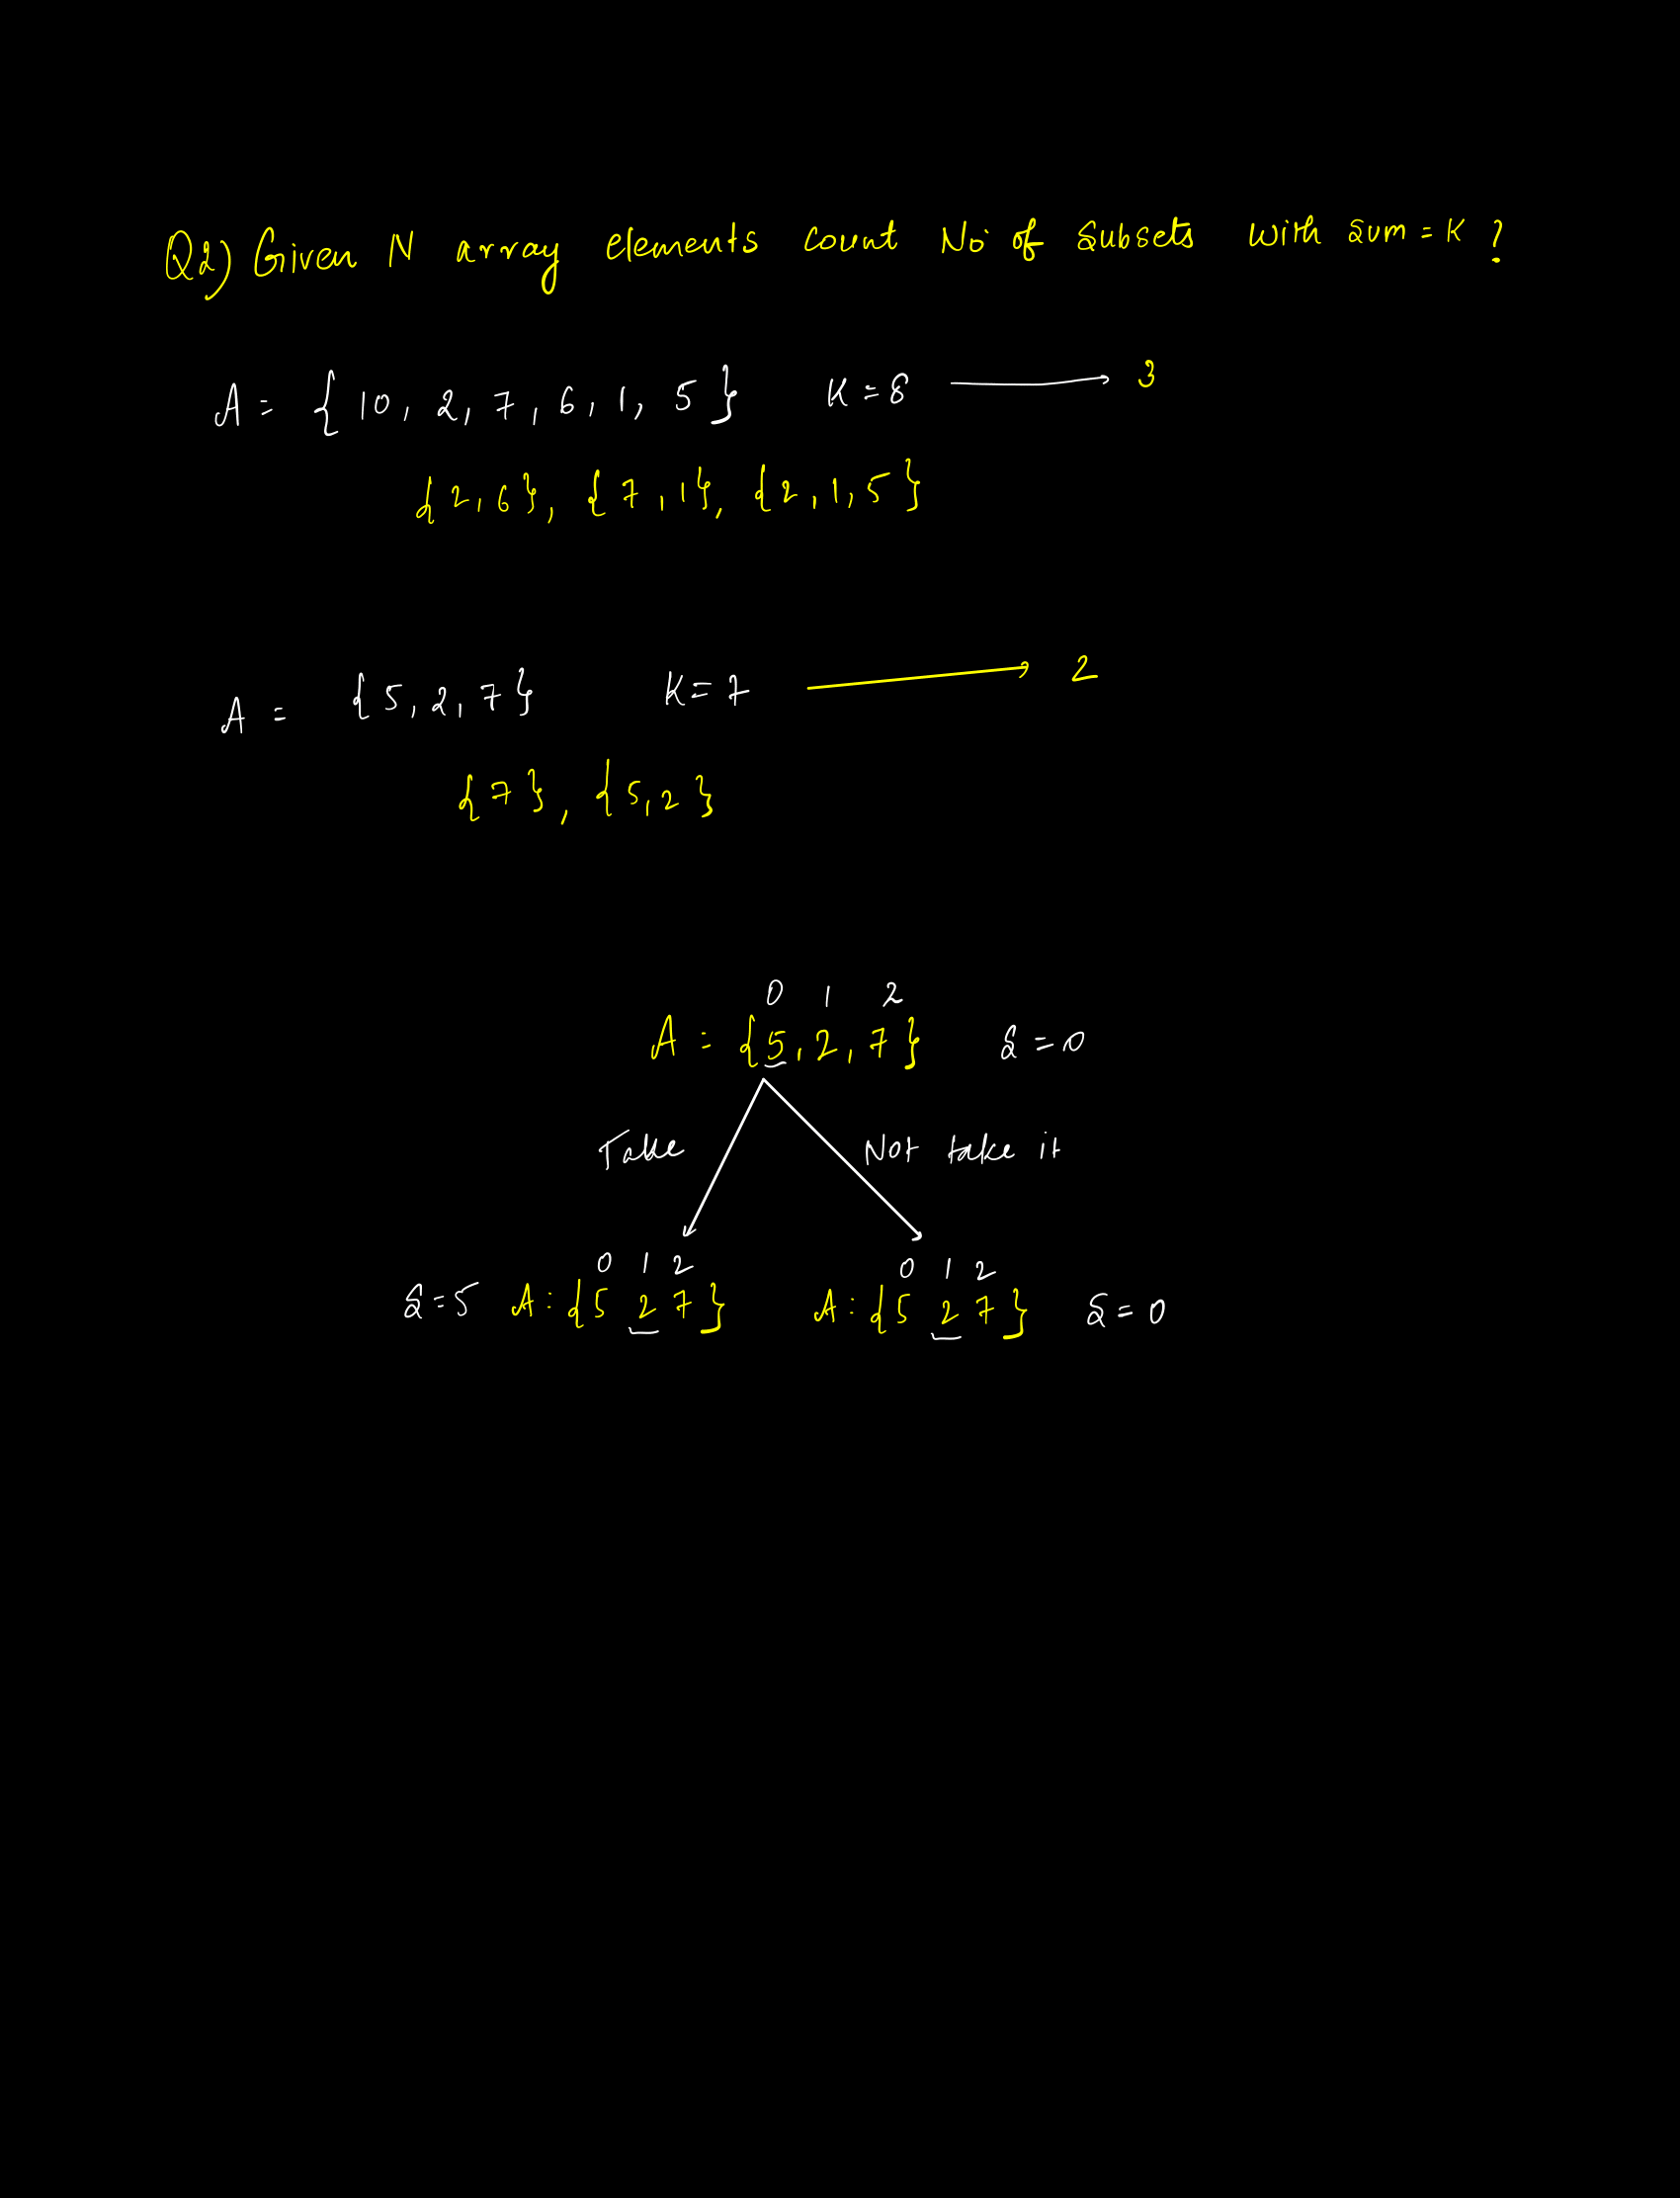 Q2) Given N array elements count No of subsets with sum = K ?
A = { 10, 2, 7, 6, 1, 5 } K = 8 → 3
{2,6}, {7,1}, {2,1,5}
A = {5, 2, 7} K = 7 → 2
{7}, {5,2}
0 1 2
A = {5, 2, 7} S = 0
Take Not take it
0 1 2 0 1 2
S=5 A:{5 2 7} A:{5 2 7} S=0